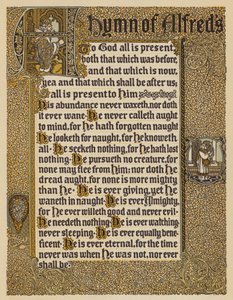 A Hymn of Alfred's
To God all is present,
both that which was before
and that which is now,
yea and that which shall be after us;
all is present to Him
His abundance never waxeth, nor doth
it ever wane. He never calleth aught
to mind, for He hath forgotten naught
He looketh for naught, for He knoweth
all. He seeketh nothing, for He hath lost
nothing. He pursueth no creature, for
none may flee from Him; nor doth He
dread aught, for none is more mighty
than He. He is ever giving, yet He
waneth in naught. He is ever Almighty,
for He ever willeth good and never evil.
He needeth nothing. He is ever watching
never sleeping. He is ever equally bene-
ficent. He is ever eternal, for the time
never was when He was not, nor ever
shall be